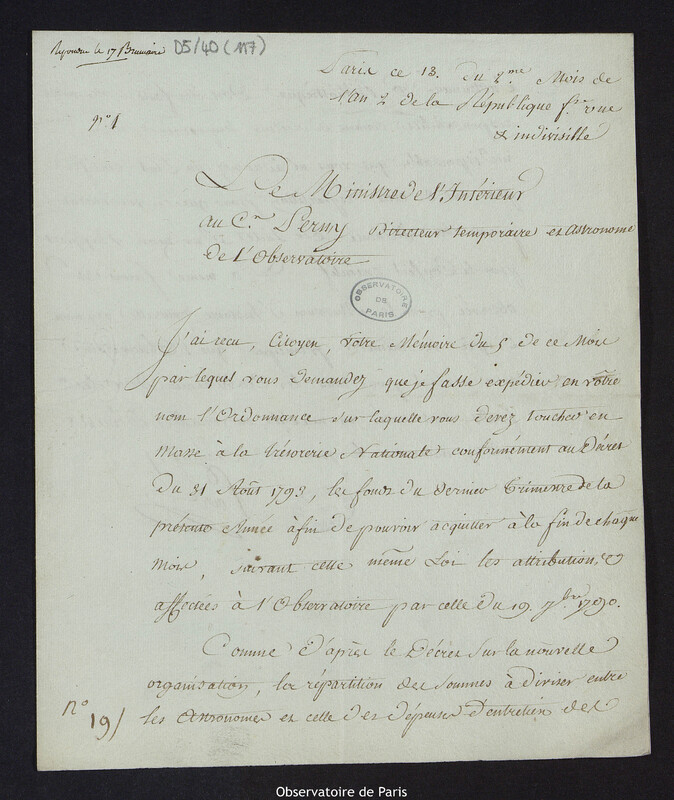 Repondu le 17 Brumaire D5/40 (117)
Paris ce 13. du 2.me Mois de
l'an 2 de la République f.se une
& indivisible
N.o 1
Le Ministre de l'Intérieur
au C.en Perny Directeur temporaire et Astronome
de l'Observatoire
OBSERVATOIRE
DE
PARIS
J'ai reçu, Citoyen, votre Mémoire du 5 de ce Mois
par lequel vous demandez que je fasse expédier en votre
nom l'Ordonnance sur laquelle vous devez toucher en
Masse à la trésorerie Nationale conformément au Décret
du 31 Août 1793, les fonds du dernier Trimestre de la
présente Année afin de pouvoir acquitter à la fin de chaque
Mois, suivant cette même Loi les attributions
affectées à l'Observatoire par celle du 19. 7.bre 1790.
Comme d'après le Décret sur la nouvelle
organisation, la répartition des sommes à diviser entre
les Astronomes et celle des dépenses d'entretien des
N.o 19
Observatoire de Paris